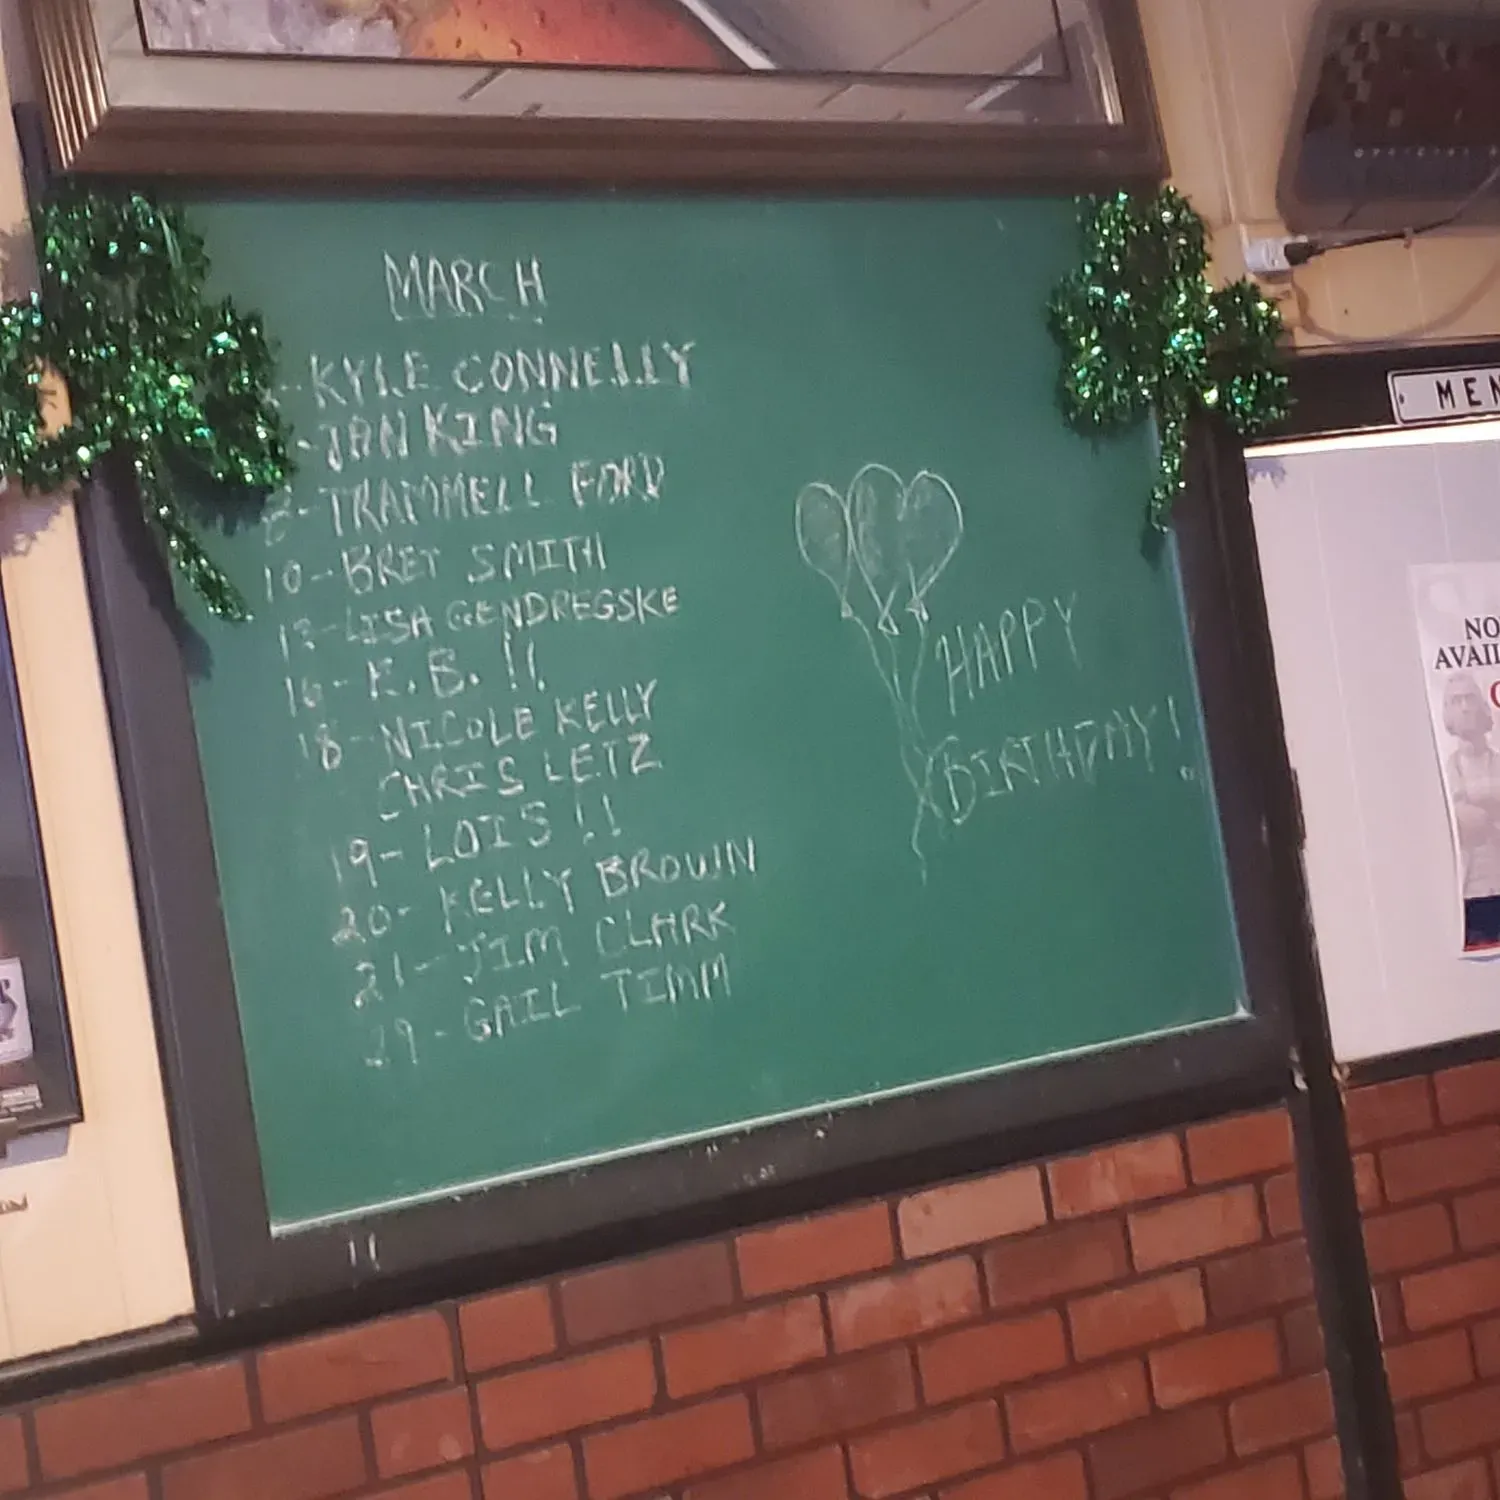 MARCH
- KYLE CONNELLY
- JAN KING
8 - TRAMMELL FORD
10 - BRET SMITH
13 - LISA GENDREGSKE
16 - K.B. !!
18 - NICOLE KELLY
CHRIS LETZ
19 - LOIS !!
20 - KELLY BROWN
21 - JIM CLARK
29 - GAIL TIMM
HAPPY
BIRTHDAY!
MEN
NO
AVAI